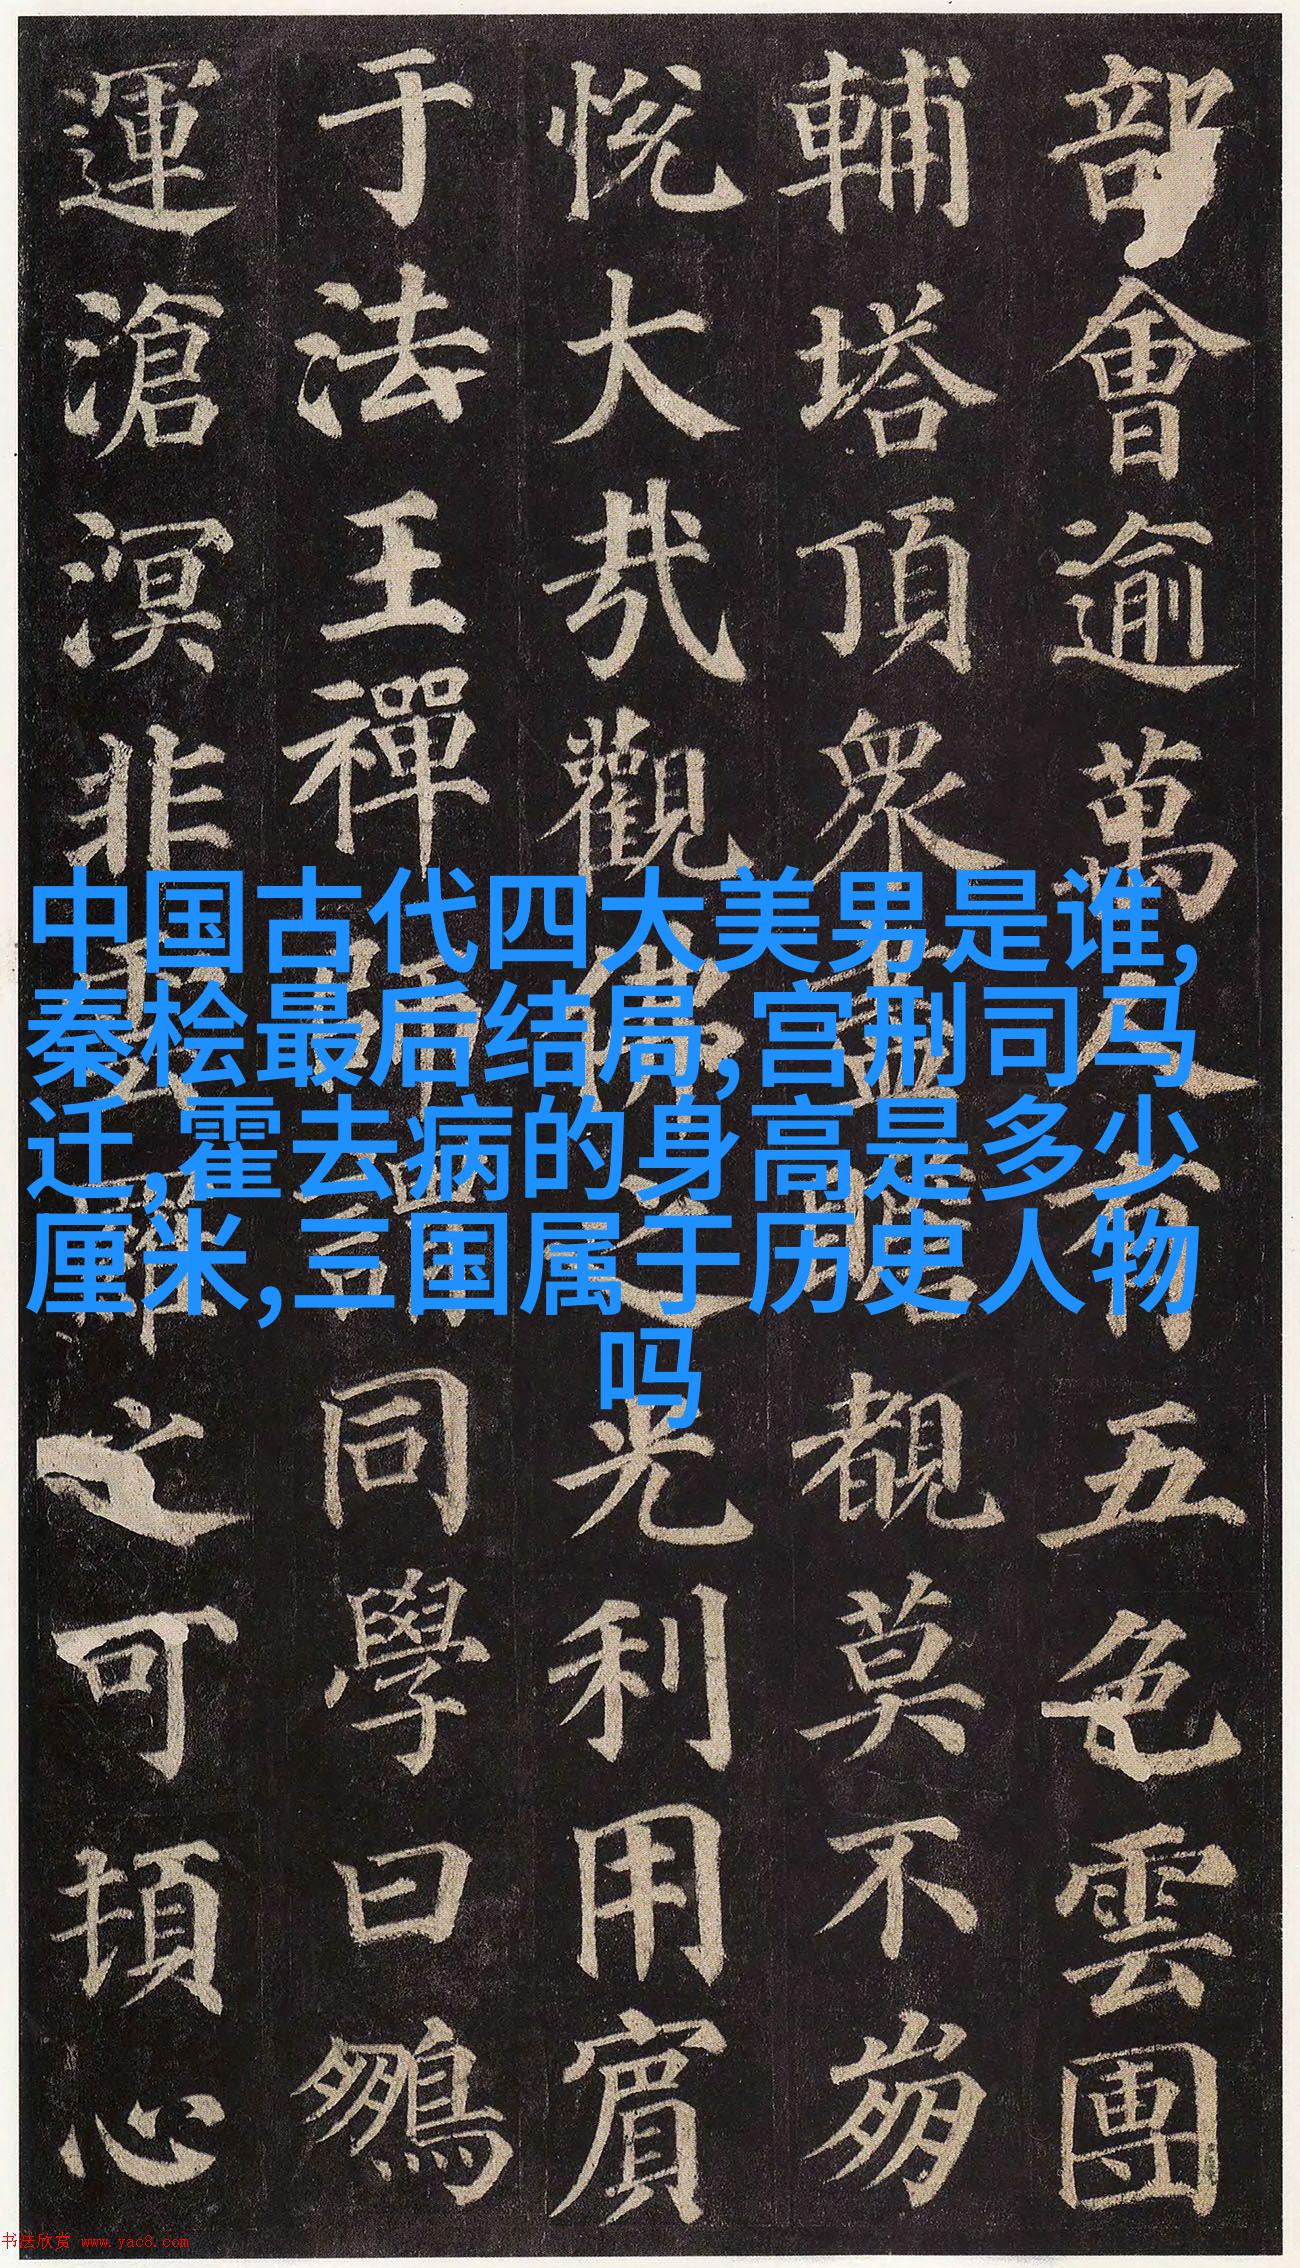 中国古代四大美男是谁,
秦桧最后结局,宫刑司马
迁,霍去病的身高是多少
厘米,三国属于历史人物
吗
部會逾萬人有五色雲團
輔塔頂眾盡瞻覩莫不崩
悅大哉觀佛之光利用賓
于法王禪師謂同學曰鵬
運滄溟非雲羅之可頓心
书法欣赏 www.yac8.com